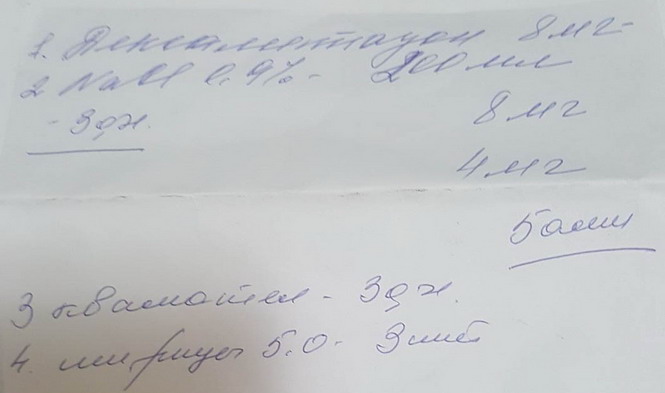 1. Дексаметазон 8мг-
2 NaCl 0,9%- 200мл
- 3дн.
8мг
4мг
5амп
3 квамател - 3дн.
4. шприцы 5.0- 3шт